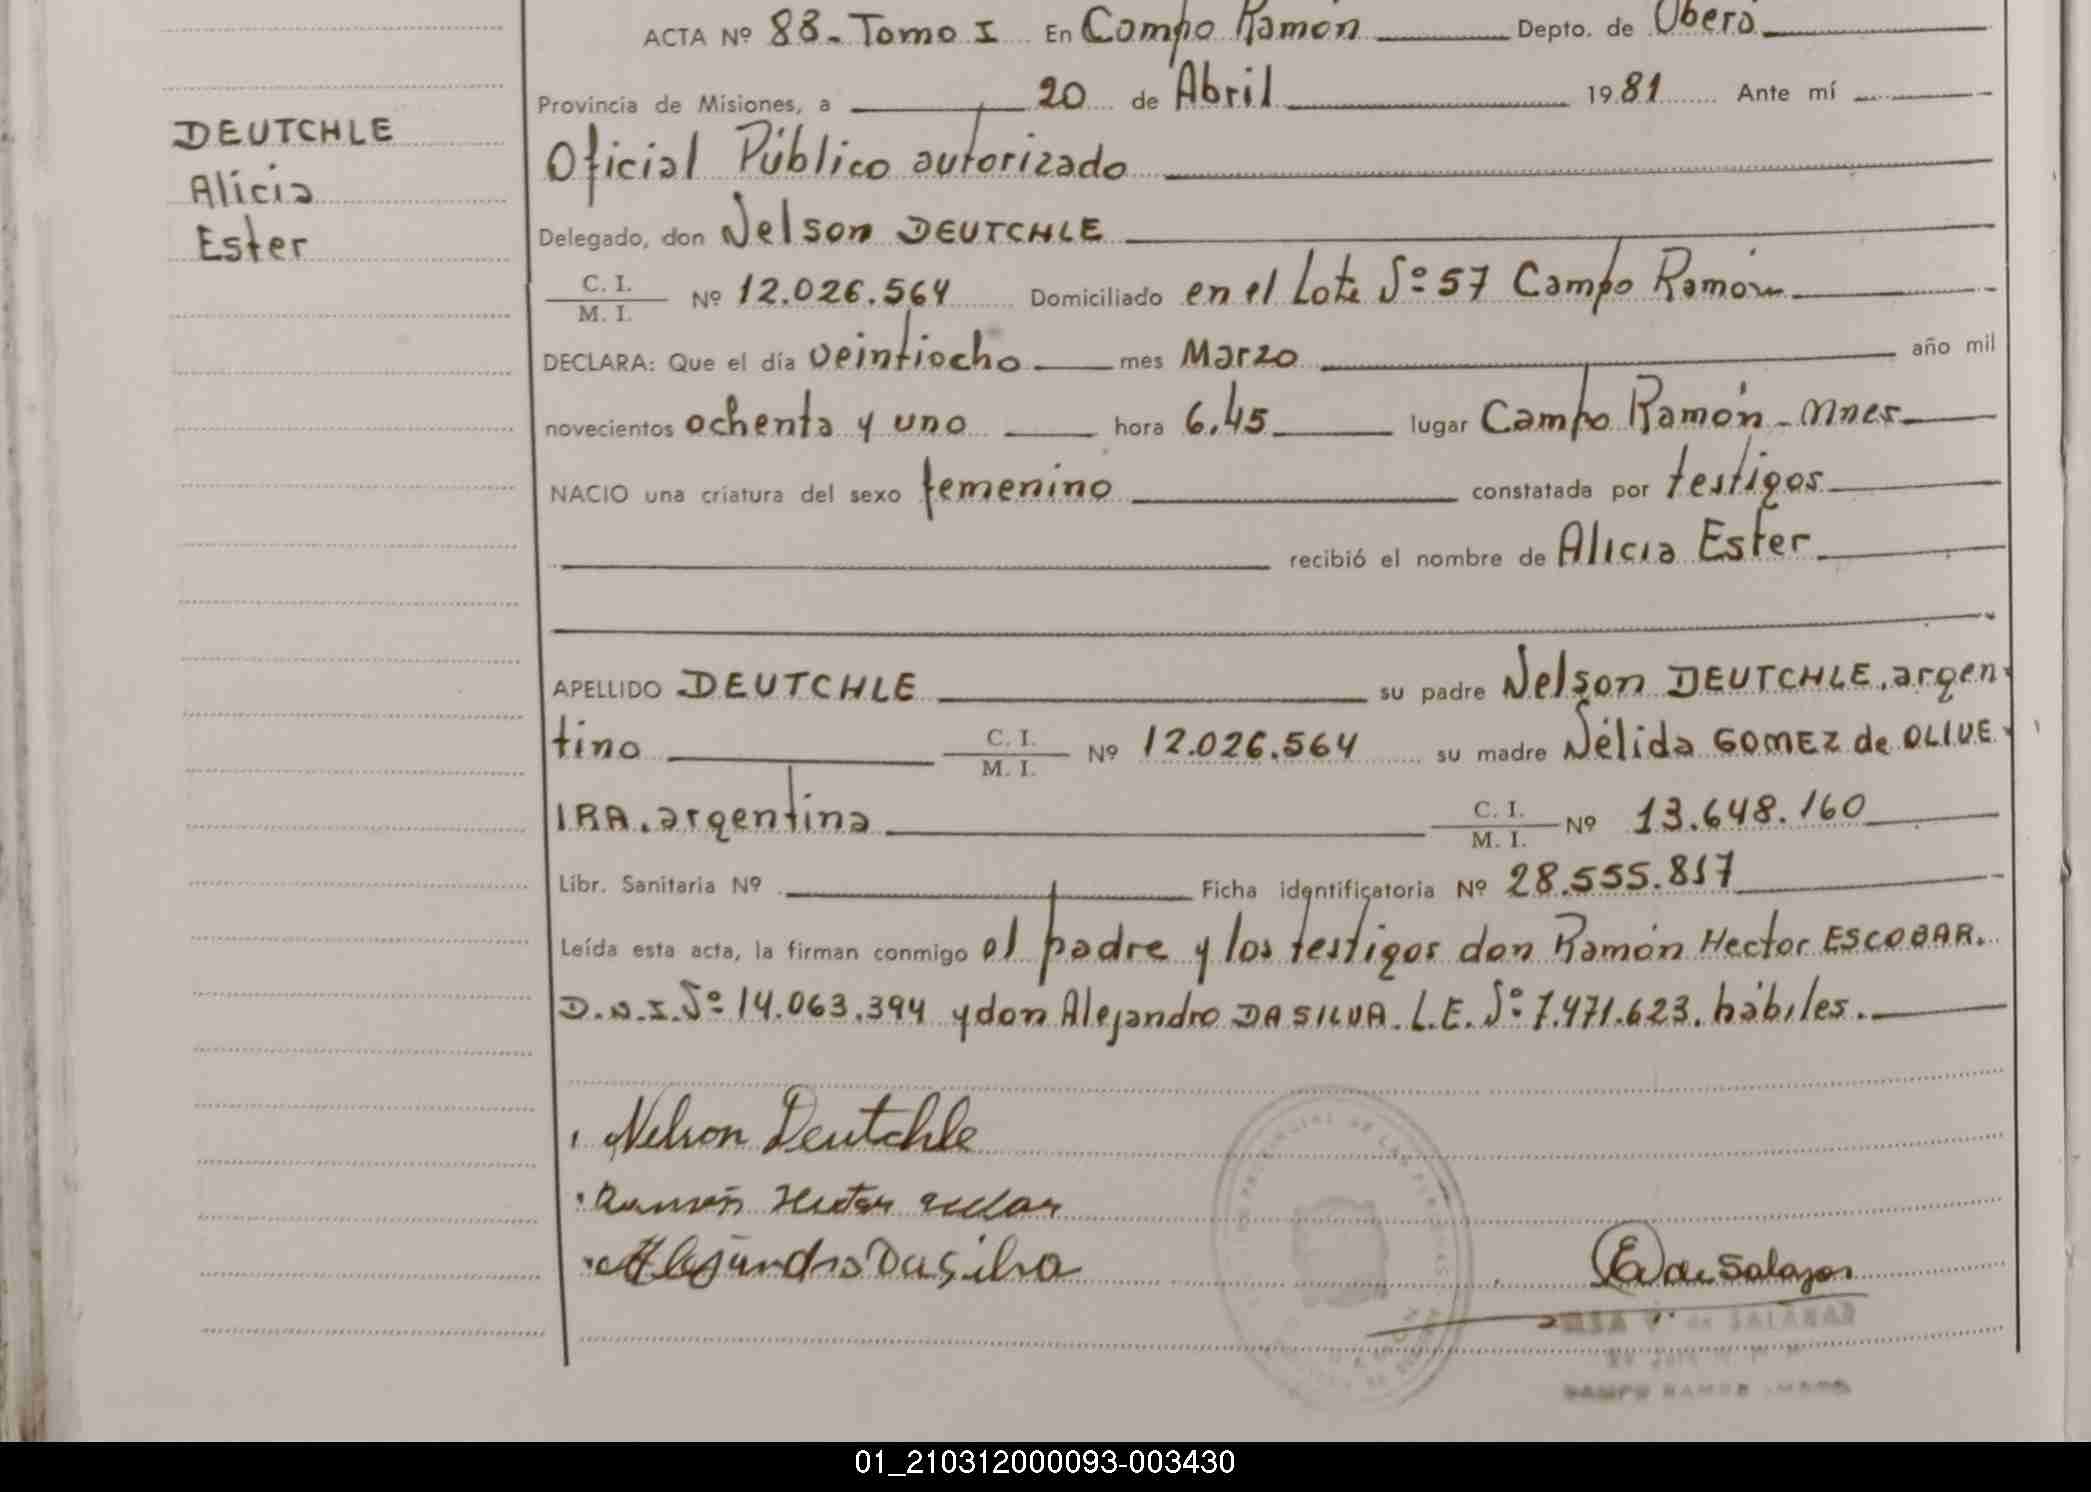 ACTA Nº 88 - Tomo I En Campo Ramón Depto. de Oberá
Provincia de Misiones, a 20 de Abril 1981 Ante mí
DEUTCHLE
Alicia
Ester
Oficial Público autorizado
Delegado, don Nelson DEUTCHLE
C. I.
M. I. Nº 12.026.564 Domiciliado en el Lote Nº 57 Campo Ramón
DECLARA: Que el día veintiocho mes Marzo año mil
novecientos ochenta y uno hora 6,45 lugar Campo Ramón - Mnes
NACIO una criatura del sexo femenino constatada por testigos
recibió el nombre de Alicia Ester
APELLIDO DEUTCHLE su padre Nelson DEUTCHLE. argen-
tino C. I. M. I. Nº 12.026.564 su madre Nélida GOMEZ de OLIVE-
IRA. argentina C. I. M. I. Nº 13.648.160
Libr. Sanitaria Nº Ficha identificatoria Nº 28.555.817
Leída esta acta, la firman conmigo el padre y los testigos don Ramón Hector ESCOBAR.
D.N.I. Nº 14.063.394 y don Alejandro DA SILVA. L.E. Nº 7.471.623. hábiles.
Nelson Deutchle
Ramón Hector
Alejandro Da Silva
de Salazar
de SALAZAR
CAMPO RAMON
01_210312000093-003430